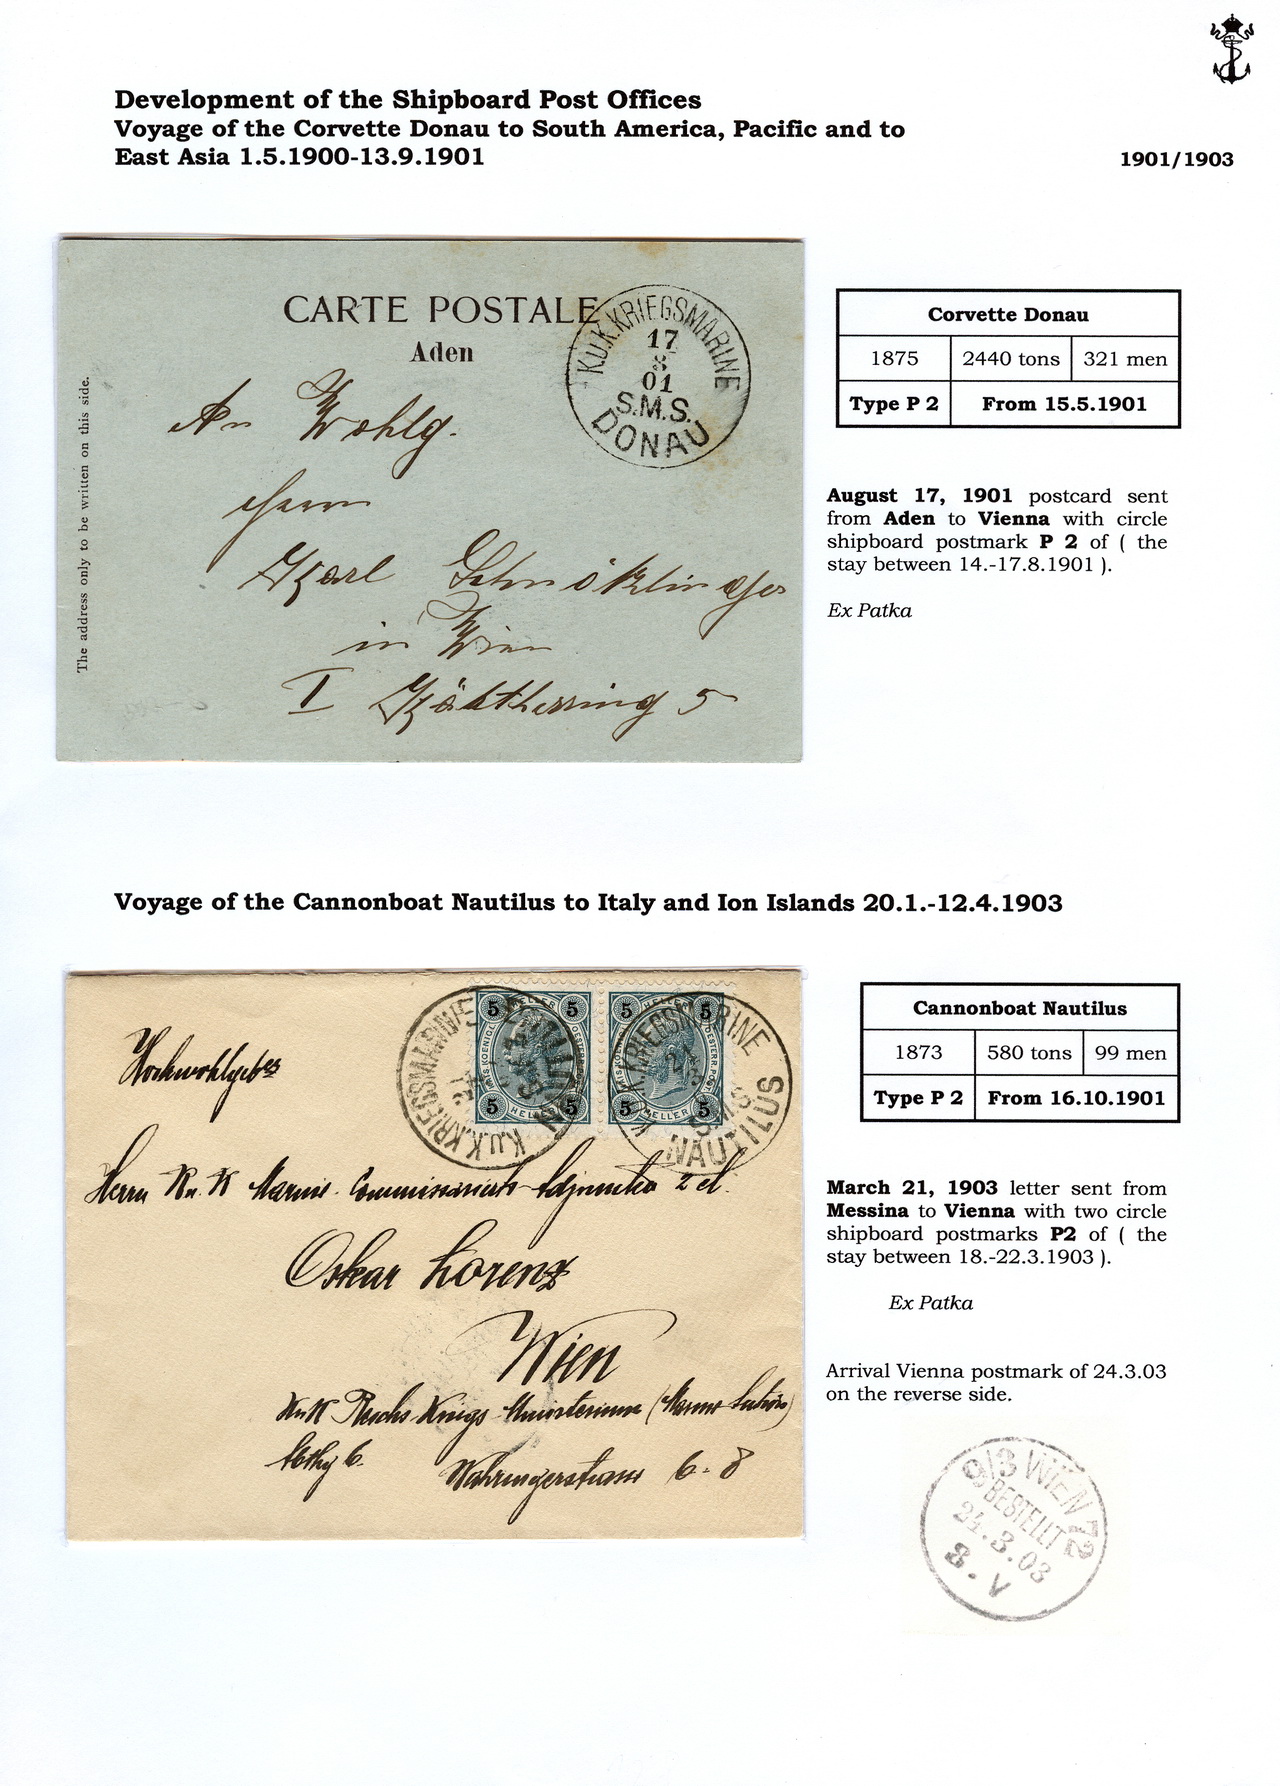 Development of the Shipboard Post Offices
Voyage of the Corvette Donau to South America, Pacific and to
East Asia 1.5.1900-13.9.1901
1901/1903
CARTE POSTALE
Aden
The address only to be written on this side.
K.u.K.KRIEGSMARINE
17
8
01
S.M.S.
DONAU
An Wohlg.
Herrn
Karl
in Wien
I 5
Corvette Donau
1875 2440 tons 321 men
Type P 2 From 15.5.1901
August 17, 1901 postcard sent
from Aden to Vienna with circle
shipboard postmark P 2 of ( the
stay between 14.-17.8.1901 ).
Ex Patka
Voyage of the Cannonboat Nautilus to Italy and Ion Islands 20.1.-12.4.1903
K.u.K.KRIEGSMARINE
S.M.S.
NAUTILUS
K.u.K.KRIEGSMARINE
S.M.S.
NAUTILUS
5 HELLER 5
5 HELLER 5
5 HELLER 5
5 HELLER 5
Hochwohlgeb
Herrn K u. K Marine-Commissariats-Adjunkten 2 cl.
Oskar Lorenz
Wien
K u K Reichs Kriegs-Ministerium (Marine Section)
Abthg 6. Währingerstrasse 6-8
Cannonboat Nautilus
1873 580 tons 99 men
Type P 2 From 16.10.1901
March 21, 1903 letter sent from
Messina to Vienna with two circle
shipboard postmarks P2 of ( the
stay between 18.-22.3.1903 ).
Ex Patka
Arrival Vienna postmark of 24.3.03
on the reverse side.
9/3 WIEN 72
BESTELLT
24.3.03
8.V